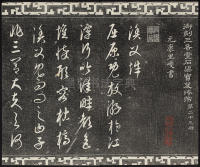 御刻三希堂石渠寶笈法帖第二十九冊
漁父辭
屈原既放游於江
潭行吟澤畔顏色
憔悴形容枯槁
漁父見而問之曰子
非三閭大夫與何